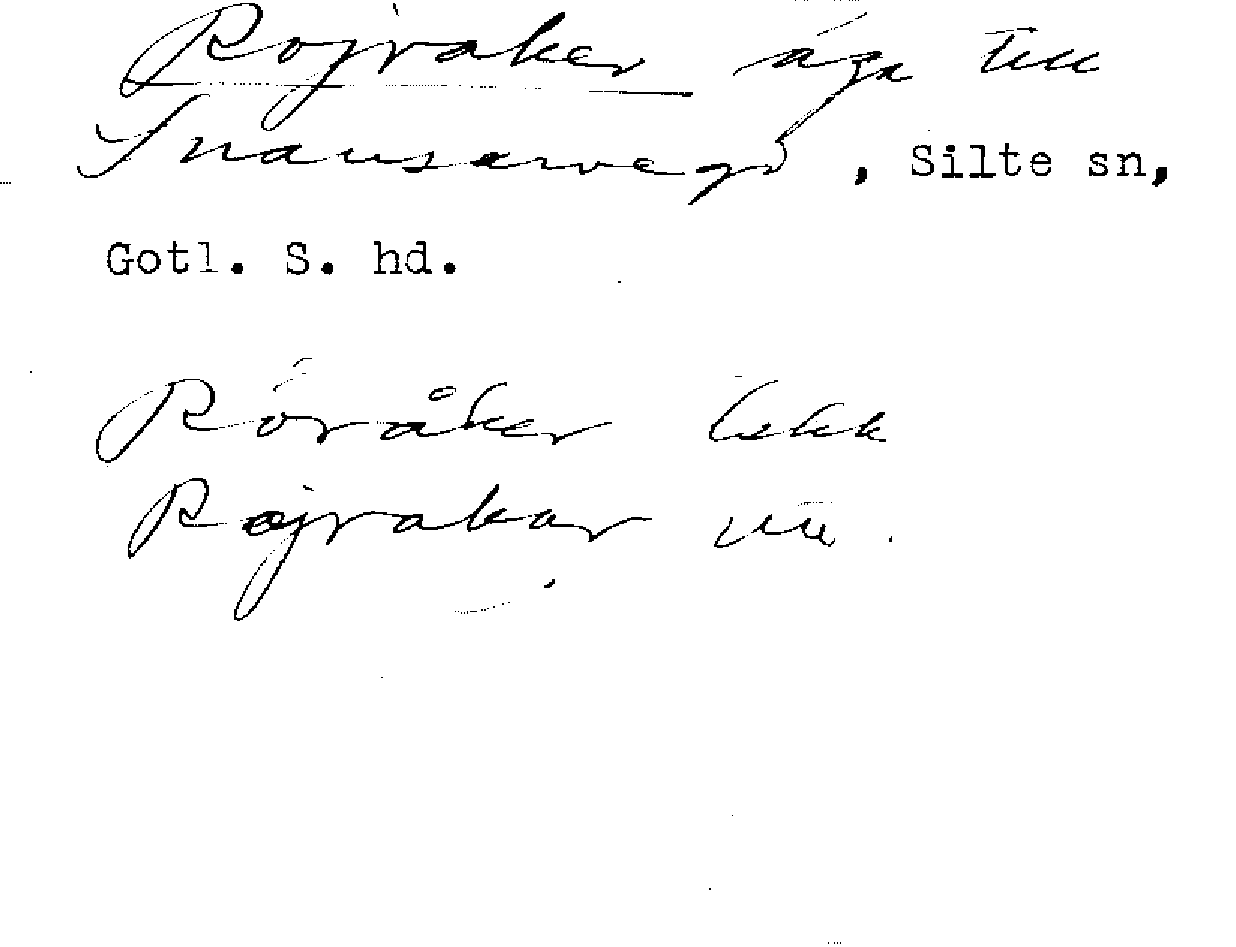 Rojraker äga till
Snausarve gd, Silte sn,
Gotl. S. hd.
Röråker
Rojrakar